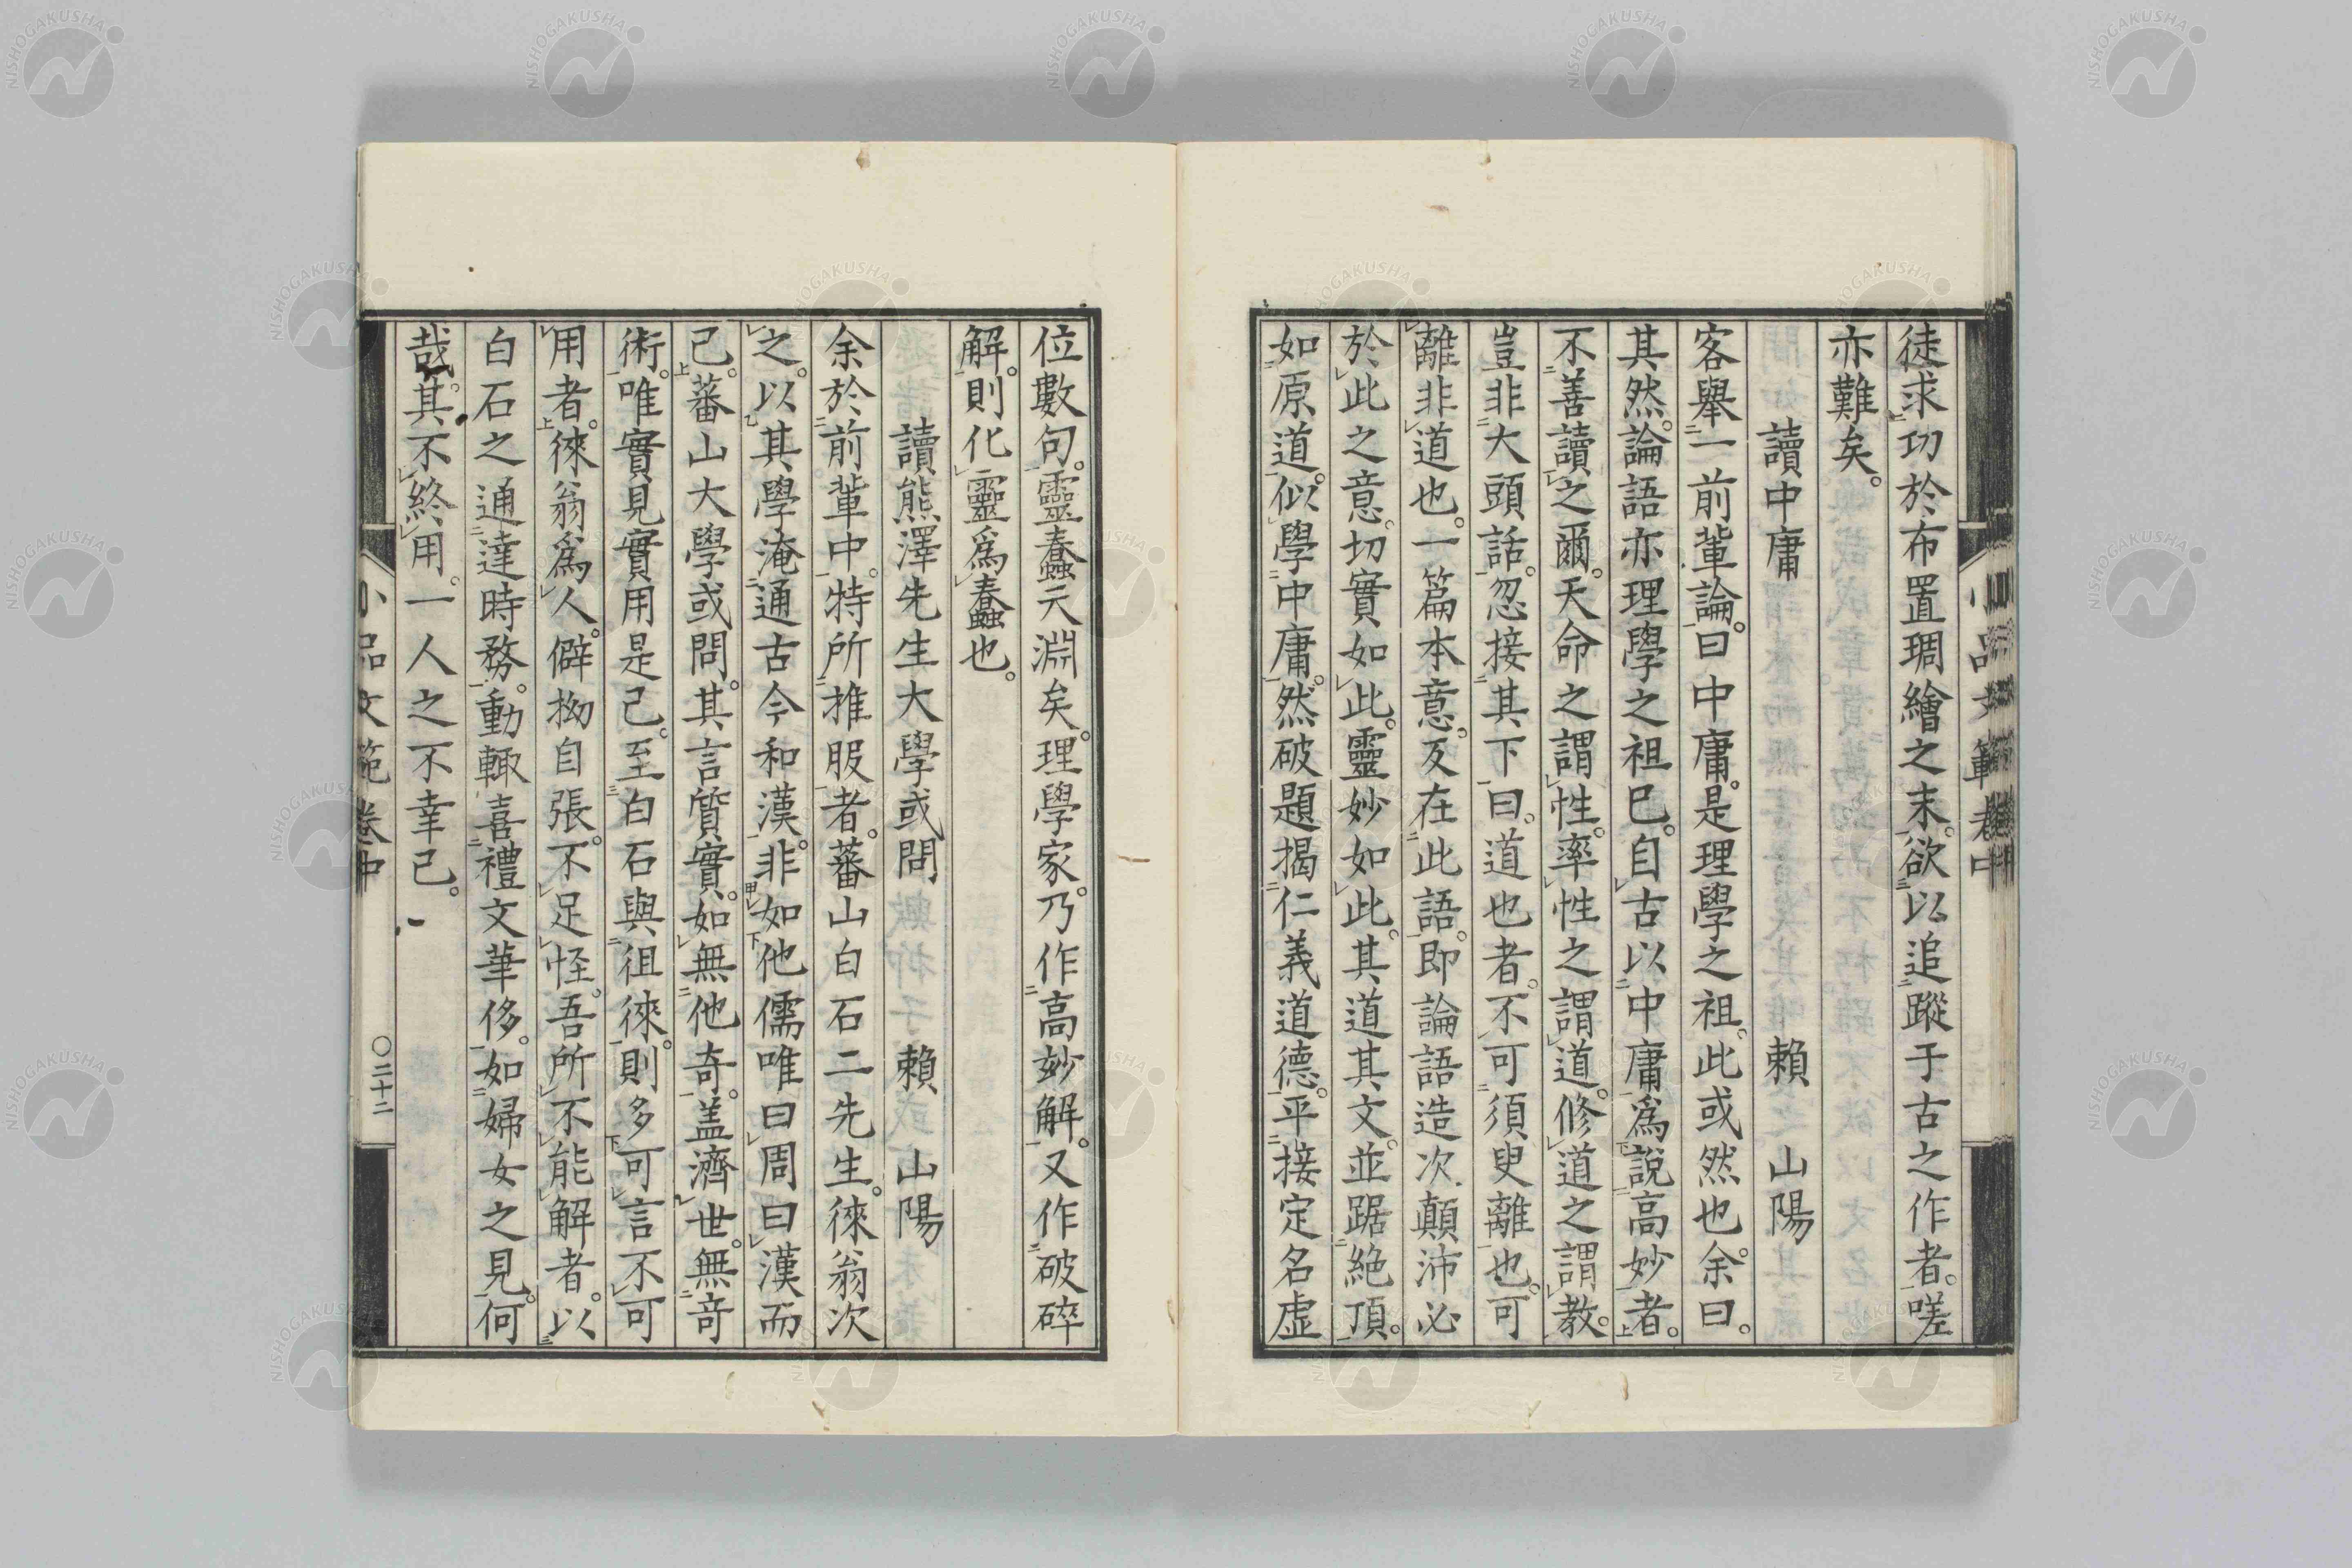 徒求功於布置琱繪之末。欲以追蹤于古之作者。嗟
亦難矣。
讀中庸 賴 山陽
客舉一前輩論。曰中庸。是理學之祖。此或然也。余曰。
其然。論語亦理學之祖已。自古以中庸為說高妙者。
不善讀之爾。天命之謂性。率性之謂道。修道之謂教。
豈非大頭話。忽接其下曰。道也者。不可須臾離也。可
離非道也。一篇本意。反在此語。即論語造次顛沛必
於此之意。切實如此。靈妙如此。其道其文。並踞絕頂。
如原道。似學中庸。然破題揭仁義道德。平接定名虛
位數句。靈蠢天淵矣。理學家。乃作高妙解。又作破碎
解。則化靈為蠢也。
讀熊澤先生大學或問 賴 山陽
余於前輩中。特所推服者。蕃山白石二先生。徠翁次
之。以其學淹通古今和漢。非如他儒唯曰周曰漢而
已。蕃山大學或問。其言質實。如無他奇。盖濟世。無奇
術。唯實見實用是已。至白石與徂徠。則多可言不可
用者。徠翁為人。僻拗自張。不足怪。吾所不能解者。以
白石之通達時務。動輒喜禮文華侈。如婦女之見。何
哉。其不終用。一人之不幸已。
小品文範卷中 〇二十二
NISHOGAKUSHA